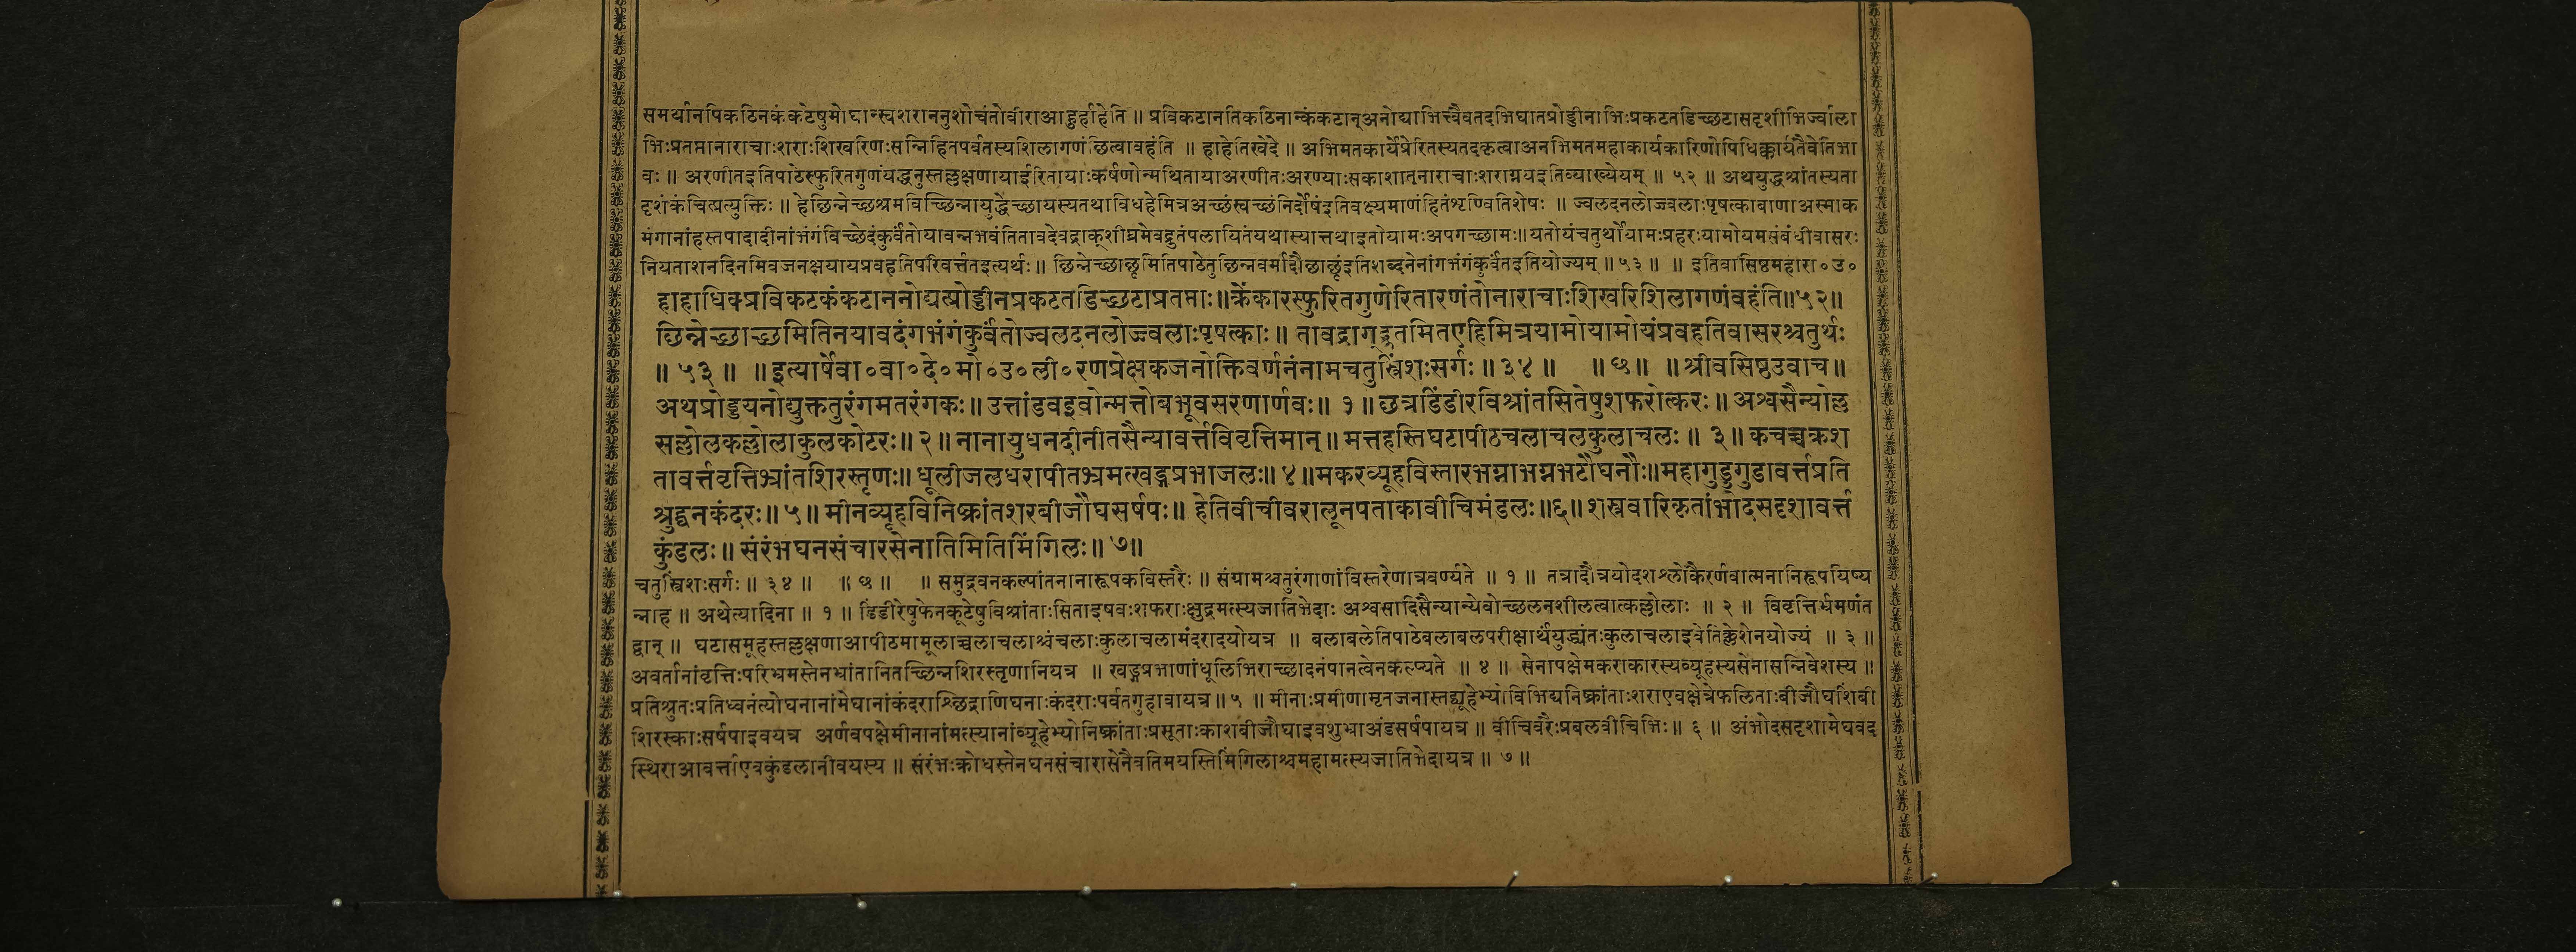 समर्थानपिकठिनकंकटेषुमोघान्स्वशराननुशोचंतोवीराआहुर्हाहेति ॥ प्रविकटानतिकठिनान्कंकटान्अनोद्याभित्त्वैवतदभिघातप्रोड्डीनाभिःप्रकटतडिच्छटासदृशीभिर्ज्वाला
भिःप्रतप्तानाराचाःशराःशिखरिणःसन्निहितपर्वतस्यशिलागणंछित्वावहंति ॥ हाहेतिखेदे ॥ अभिमतकार्येप्रेरितस्यतदकृत्वाअनभिमतमहाकार्यकारिणोपिधिक्कार्यतैवेतिभा
वः ॥ अरणीतइतिपाठेस्फुरितगुणंयद्धनुस्तल्लक्षणायाईरितायाःकर्षणोन्मथितायाअरणीतःअरण्याःसकाशात्नाराचाःशराग्नयइतिव्याख्येयम् ॥ ५२ ॥ अथयुद्धश्रांतस्यता
दृशंकंचित्प्रत्युक्तिः ॥ हेछिन्नेच्छश्रमविच्छिन्नायुद्धेच्छायस्यतथाविधहेमित्रअच्छंस्वच्छंनिर्दोषंइतिवक्ष्यमाणंहितंशृण्वितिशेषः ॥ ज्वलदनलोज्वलाःपृषत्काबाणाअस्माक
मंगानांहस्तपादादीनांभंगंविच्छेदंकुर्वंतोयावन्नभवंतितावदेवद्राक्शीघ्रमेवद्रुतंपलायितंयथास्यात्तथाइतोयामःअपगच्छामः॥यतोयंचतुर्थोयामःप्रहरःयामोयमसंबंधीवासरः
नियताशनदिनमिवजनक्षयायप्रवहतिपरिवर्त्ततइत्यर्थः॥ छिन्नेच्छाछ्रमितिपाठेतुछिन्नवर्मादौछाछ्रंइतिशब्दनेनांगभंगंकुर्वतइतियोज्यम् ॥५३॥ ॥ इतिवासिष्ठमहारा०उ०
हाहाधिक्प्रविकटकंकटाननोद्यत्प्रोड्डीनप्रकटतडिच्छटाप्रतप्ताः॥क्रेंकारस्फुरितगुणेरितारणंतोनाराचाःशिखरिशिलागणंवहंति॥५२॥
छिन्नेच्छाच्छमितिनयावदंगभंगंकुर्वंतोज्वलदनलोज्ज्वलाःपृषत्काः॥ तावद्राग्द्रुतमितएहिमित्रयामोयामोयंप्रवहतिवासरश्चतुर्थः
॥ ५३॥ ॥इत्यार्षेवा०वा०दे०मो०उ०ली०रणप्रेक्षकजनोक्तिवर्णनंनामचतुस्त्रिंशःसर्गः॥३४॥ ॥छ॥ ॥श्रीवसिष्ठउवाच॥
अथप्रोड्डयनोद्युक्ततुरंगमतरंगकः॥ उत्तांडवइवोन्मत्तोबभूवसरणार्णवः॥ १॥छत्रडिंडीरविश्रांतसितेषुशफरोत्करः॥अश्वसैन्योल्ल
सल्लोलकल्लोलाकुलकोटरः॥२॥नानायुधनदीनीतसैन्यावर्त्तविवृत्तिमान्॥मत्तहस्तिघटापीठचलाचलकुलाचलः॥ ३॥कचच्चक्रश
तावर्त्तवृत्तिभ्रांतशिरस्तृणः॥धूलीजलधरापीतभ्रमत्खड्गप्रभाजलः॥४॥मकरव्यूहविस्तारभग्नाभग्नभटौघनौः॥महागुड्डगुडावर्त्तप्रति
श्रुद्धनकंदरः॥५॥मीनव्यूहविनिष्क्रांतशरबीजौघसर्षपः॥ हेतिवीचीवरालूनपताकावीचिमंडलः॥६॥शस्त्रवारिकृतांभोदसदृशावर्त्त
कुंडलः॥संरंभघनसंचारसेनातिमितिमिंगिलः॥७॥
चतुस्त्रिंशःसर्गः॥ ३४॥ ॥छ॥ ॥ समुद्रवनकल्पांतनानारूपकविस्तरैः॥ संग्रामश्चतुरंगाणांविस्तरेणात्रवर्ण्यते ॥ १॥ तत्रादौत्रयोदशश्लोकैरर्णवात्मनानिरूपयिष्य
न्नाह ॥ अथेत्यादिना ॥ १ ॥ डिंडीरेषुफेनकूटेषुविश्रांताःसिताइषवःशफराःक्षुद्रमत्स्यजातिभेदाः अश्वसादिसैन्यान्येवोच्छलनशीलत्वात्कल्लोलाः ॥ २ ॥ विवृत्तिर्भ्रमणंत
द्वान् ॥ घटासमूहस्तल्लक्षणाआपीठमामूलाच्चलाचलाश्चंचलाःकुलाचलामंदरादयोयत्र ॥ बलाबलेतिपाठेबलाबलपरीक्षार्थंयुद्ध्यंतःकुलाचलाइवेतिक्लेशेनयोज्यं ॥ ३॥
अवर्तानांवृत्तिःपरिभ्रमस्तेनभ्रांतानितच्छिन्नशिरस्तृणानियत्र ॥ खड्गप्रभाणांधूलिभिराच्छादनंपानत्वेनकल्प्यते ॥ ४ ॥ सेनापक्षेमकराकारस्यव्यूहस्यसेनासन्निवेशस्य॥
प्रतिश्रुतःप्रतिध्वनंत्योघनानांमेघानांकंदराश्छिद्राणिघनाःकंदराःपर्वतगुहावायत्र॥५ ॥ मीनाःप्रमीणामृतजनास्तद्व्यूहेभ्योविभिद्यनिष्क्रांताःशराएवक्षेत्रेफलिताःबीजौघशिंबी
शिरस्काःसर्षपाइवयत्र अर्णवपक्षेमीनानांमत्स्यानांव्यूहेभ्योनिष्क्रांताःप्रसूताःकाशबीजौघाइवशुभ्राअंडसर्षपायत्र॥ वीचिवरैःप्रबलवीचिभिः॥ ६ ॥ अंभोदसदृशामेघवद
स्थिराआवर्त्ताएवकुंडलानीवयस्य ॥ संरंभःक्रोधस्तेनघनसंचारासेनैवतिमयस्तिमिंगिलाश्चमहामत्स्यजातिभेदायत्र ॥ ७॥